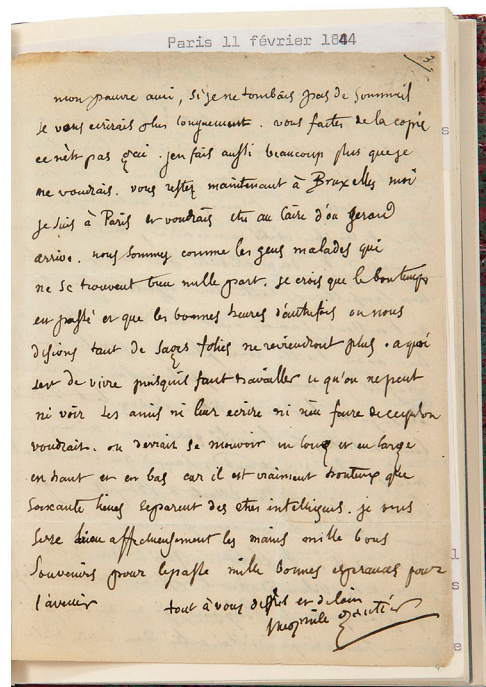 Paris 11 février 1844
mon pauvre ami, si je ne tombais pas de sommeil
je vous ecrirais plus longuement. vous faites de la copie
ce n'est pas gai. j'en fais aussi beaucoup plus que je
ne voudrais. vous restez maintenant à Bruxelles moi
je suis à Paris et voudrais etre au Caire d'ou gerard
arrive. nous sommes comme les gens malades qui
ne se trouvent bien nulle part. je crois que le bon temps
est passé et que les bonnes heures d'autrefois ou nous
disions tant de sages folies ne reviendront plus. a quoi
sert de vivre puisqu'il faut travailler et qu'on ne peut
ni voir ses amis ni leur ecrire ni rien faire de ce qu'on
voudrait. on devrait se mouvoir en long et en large
en haut et en bas car il est vraiment honteux que
soixante lieues separent des etres intelligens. je vous
serre bien affectueusement les mains mille bons
souvenirs pour le passé mille bonnes esperances pour
l'avenir
tout à vous de près et de loin
theophile gautier
s
l
s
e